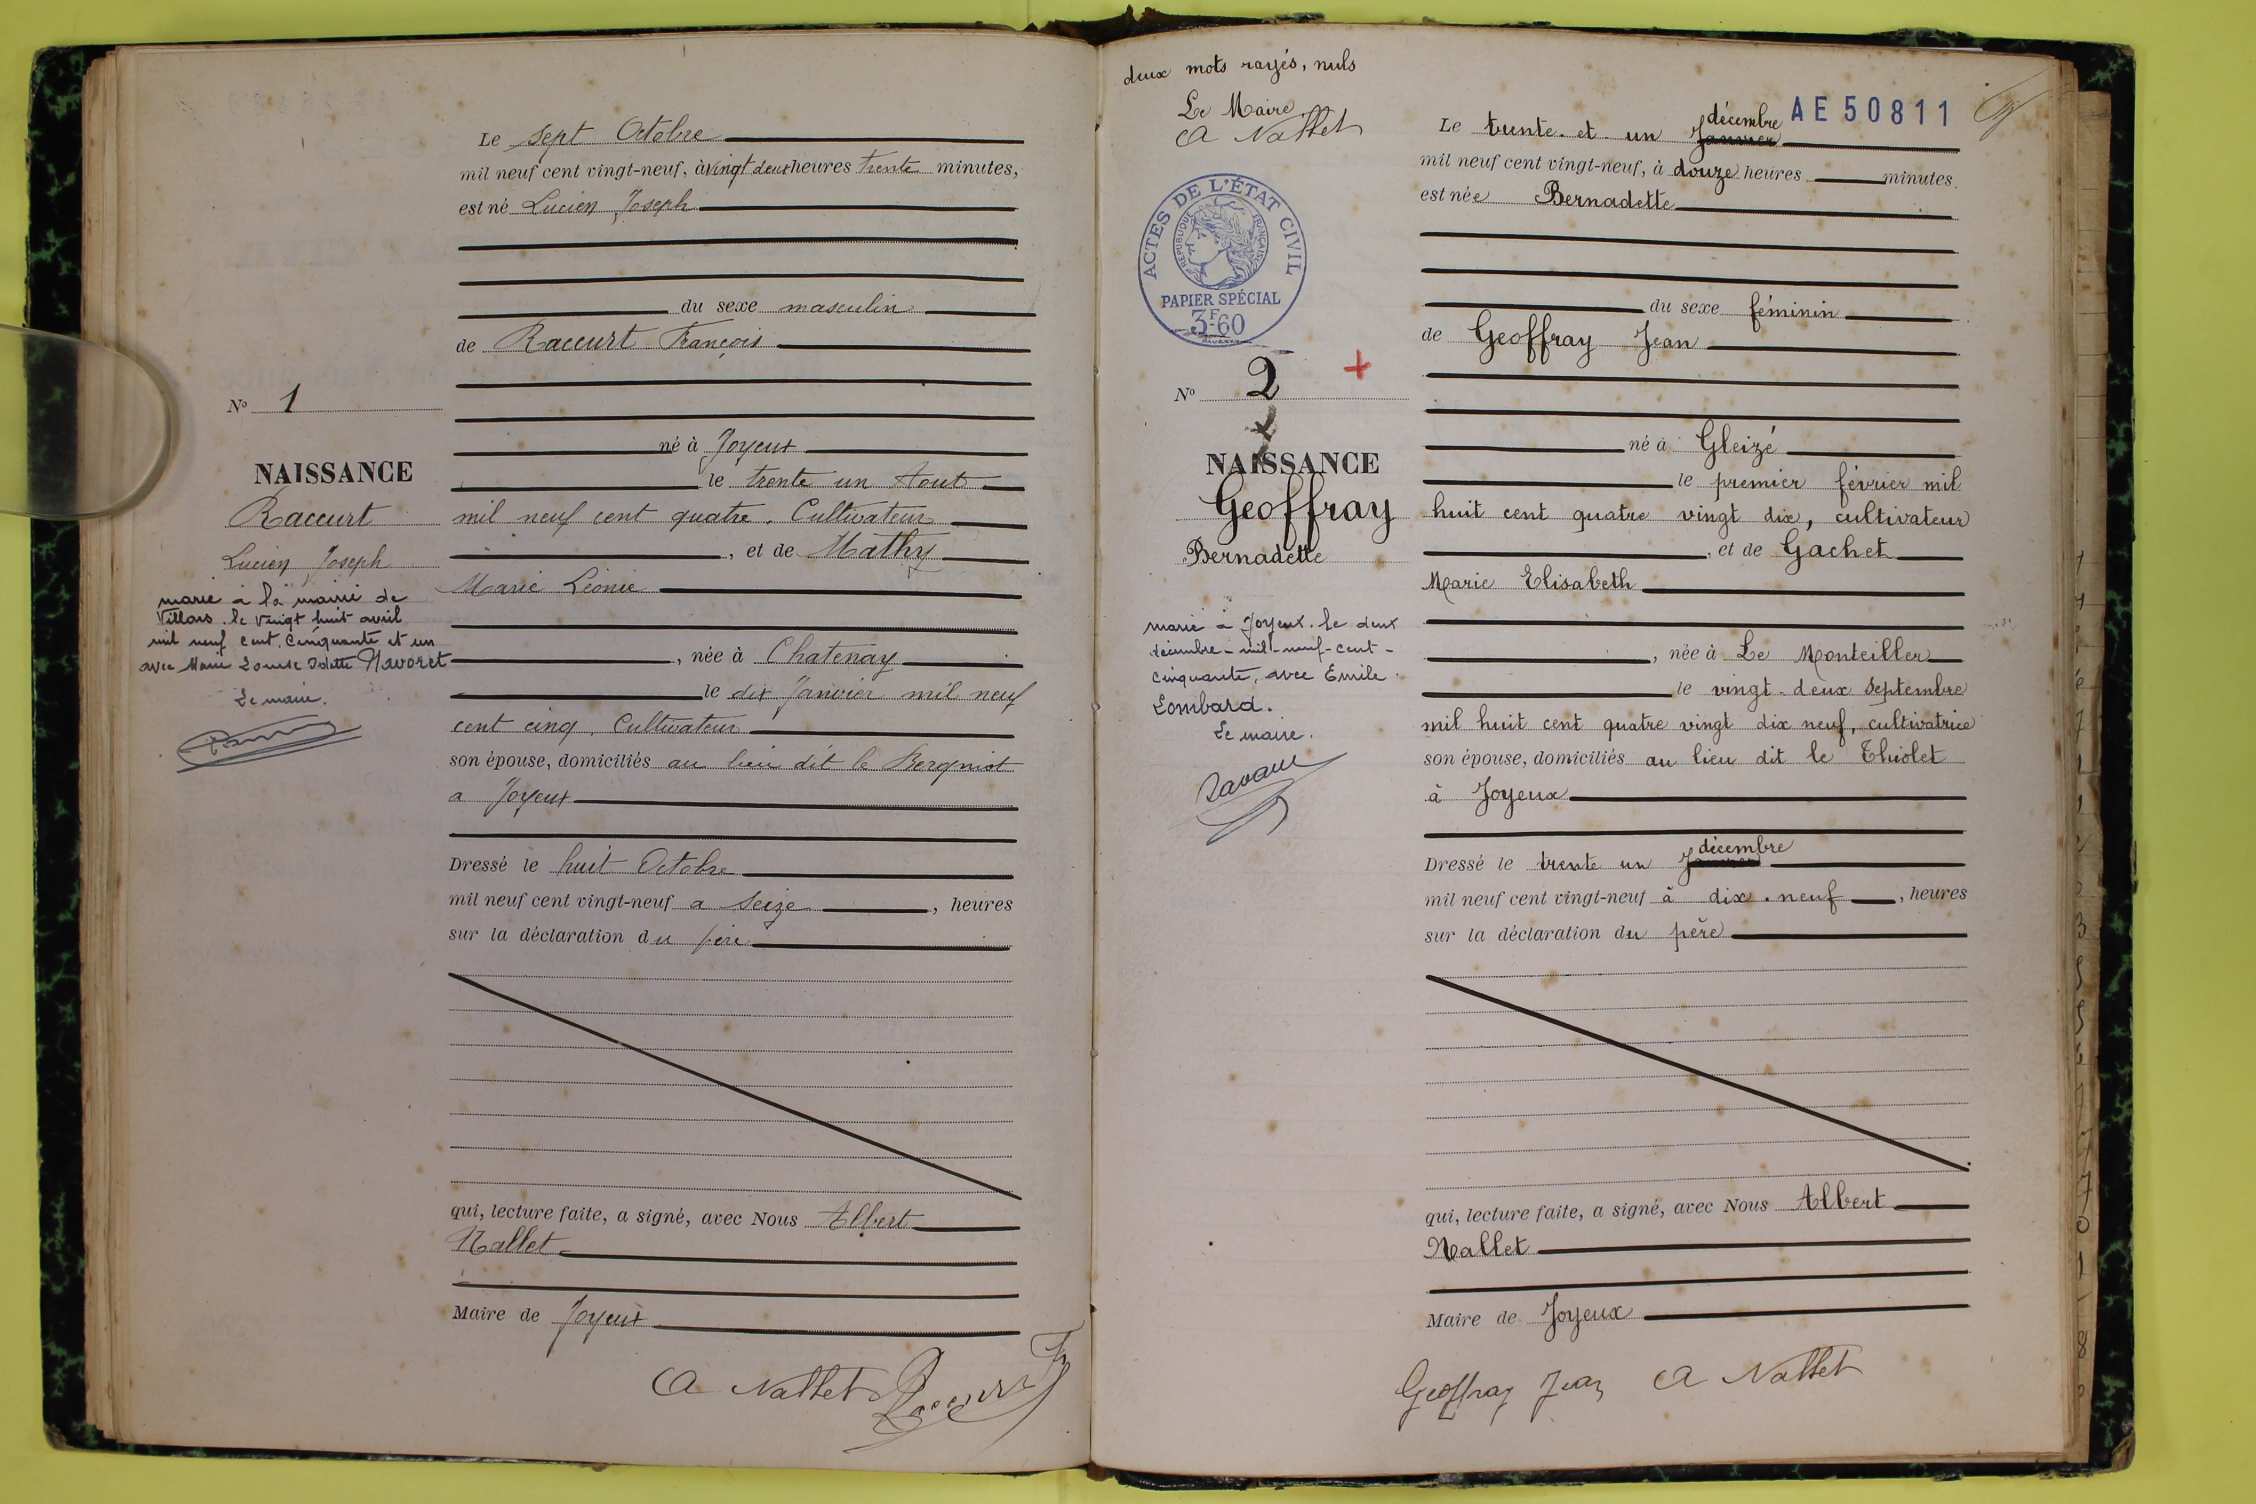 Le sept Octobre
mil neuf cent vingt-neuf, à vingt deux heures trente minutes,
est né Lucien Joseph
du sexe masculin
de Raccurt François
né à Joyeux
le trente un Aout
mil neuf cent quatre. Cultivateur
, et de Mathy
Marie Léonie
, née à Chatenay
le dix Janvier mil neuf
cent cinq. Cultivateur
son épouse, domiciliés au lieu dit le
a Joyeux
Dressé le huit Octobre
mil neuf cent vingt-neuf a seize, heures
sur la déclaration du père
qui, lecture faite, a signé, avec Nous Albert
Nallet
Maire de Joyeux
A Nallet Raccurt
No 1
NAISSANCE
Raccurt
Lucien Joseph
marié à la mairie de
Villars. le vingt huit avril
mil neuf cent cinquante et un
avec Marie Louise Odette Navoret
Le maire.
deux mots rayés, nuls
Le Maire
A Nallet
ACTES DE L'ÉTAT CIVIL
RÉPUBLIQUE FRANÇAISE
PAPIER SPÉCIAL
3F60
No 2 +
NAISSANCE
Geoffray
Bernadette
marié à Joyeux. le deux
décembre - mil - neuf - cent -
cinquante, avec Emile
Lombard.
Le maire.
AE 50811
décembre
Le trente et un Janvier
mil neuf cent vingt-neuf, à douze heures minutes.
est née Bernadette
du sexe féminin
de Geoffray Jean
né à Gleizé
le premier février mil
huit cent quatre vingt dix, cultivateur
, et de Gachet
Marie Elisabeth
, née à Le Monteiller
le vingt-deux septembre
mil huit cent quatre vingt dix neuf, cultivatrice
son épouse, domiciliés au lieu dit le Thiolet
à Joyeux
décembre
Dressé le trente un Janvier
mil neuf cent vingt-neuf à dix-neuf, heures
sur la déclaration du père
qui, lecture faite, a signé, avec Nous Albert
Nallet
Maire de Joyeux
Geoffray Jean A Nallet